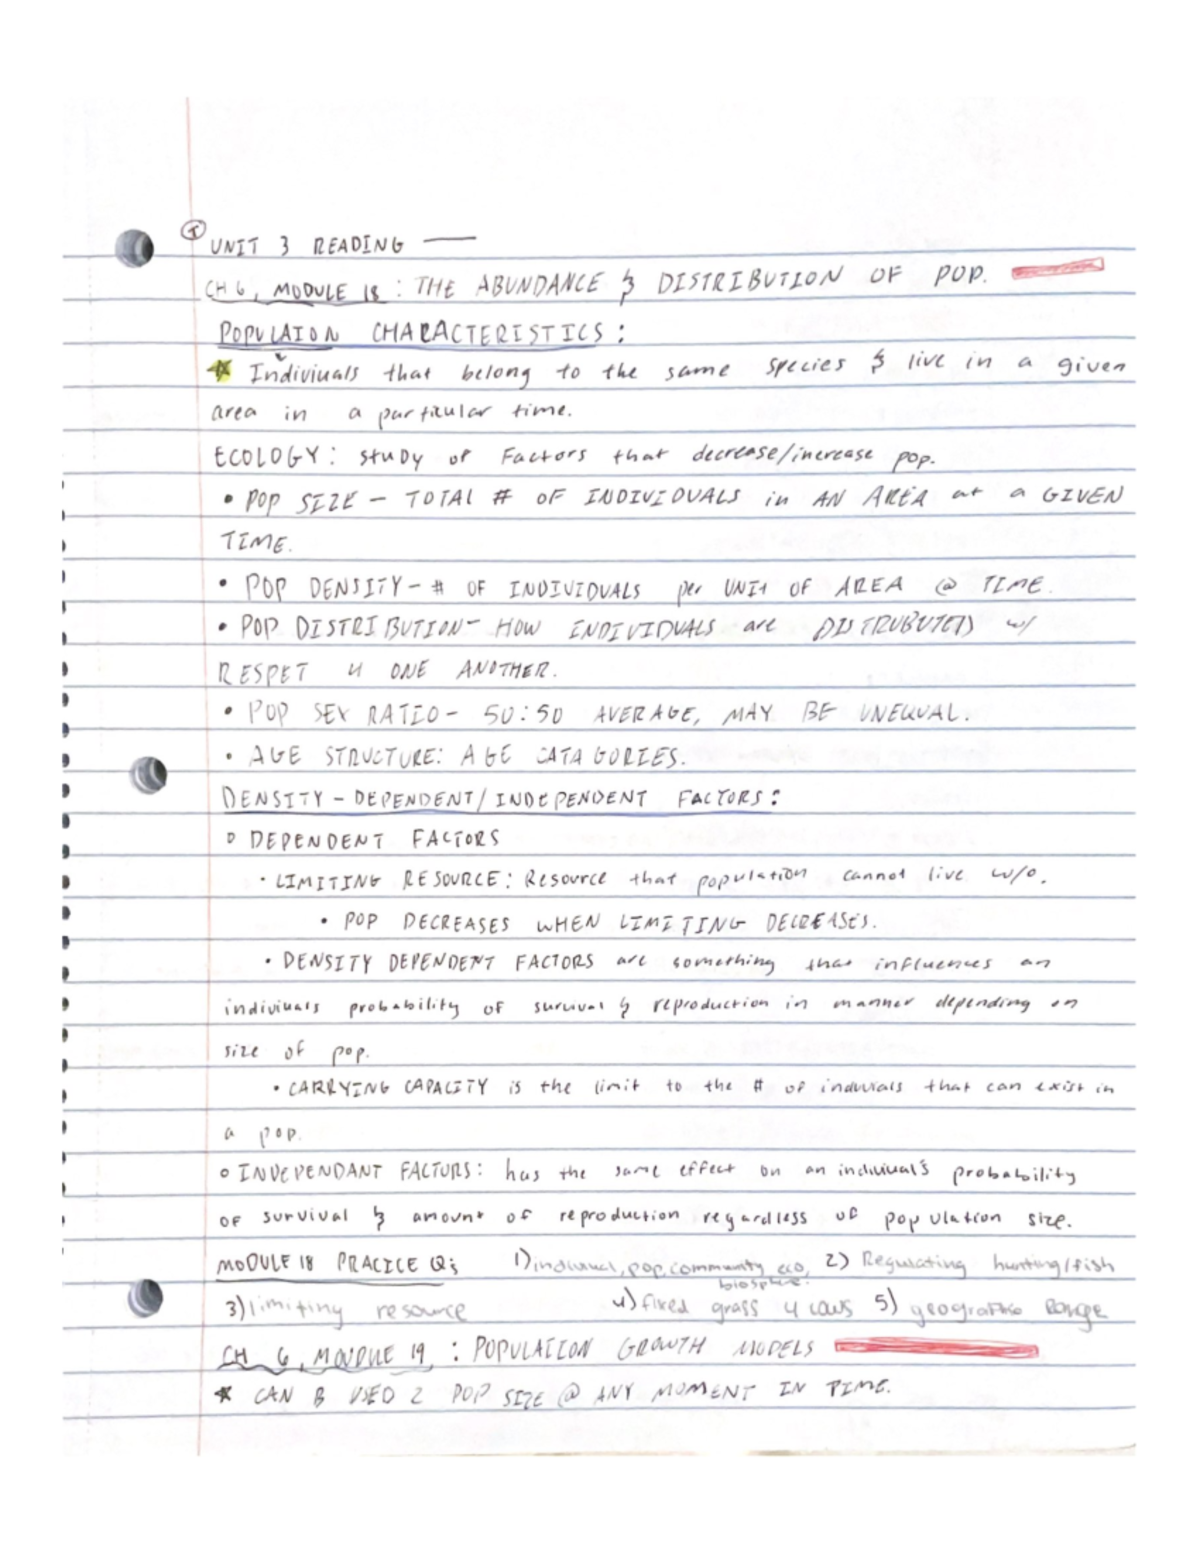 UNIT 3 READING —
CH 6, MODULE 18 : THE ABUNDANCE & DISTRIBUTION OF POP.
POPULAION CHARACTERISTICS :
★ Indiviuals that belong to the same species & live in a given
area in a particular time.
ECOLOGY: study of Factors that decrease/increase pop.
• POP SIZE - TOTAL # OF INDIVIDUALS in AN AREA at a GIVEN
TIME.
• POP DENSITY - # OF INDIVIDUALS per UNIt OF AREA @ TIME.
• POP DISTRIBUTION - HOW INDIVIDUALS are DISTRUBUTED w/
RESPET 4 ONE ANOTHER.
• POP SEX RATIO - 50:50 AVERAGE, MAY BE UNEQUAL.
• AGE STRUCTURE: AGE CATAGORIES.
DENSITY - DEPENDENT/INDEPENDENT FACTORS :
o DEPENDENT FACTORS
• LIMITING RESOURCE: Resource that population cannot live w/o.
• POP DECREASES WHEN LIMITING DECREASES.
• DENSITY DEPENDENT FACTORS are something that influences an
indiviuals probability of survival & reproduction in manner depending on
size of pop.
• CARRYING CAPACITY is the limit to the # of induvials that can exist in
a pop.
o INDEPENDANT FACTORS: has the same effect on an indiviual's probability
of survival & amount of reproduction regardless of population size.
MODULE 18 PRACICE Q's 1) indiviual, pop, community eco, biosphere. 2) Regulating hunting/fish
3) limiting resource 4) fixed grass 4 cows 5) geographic Range
CH 6, MODULE 19, : POPULATION GROWTH MODELS
★ CAN B USED 2 POP SIZE @ ANY MOMENT IN TIME.